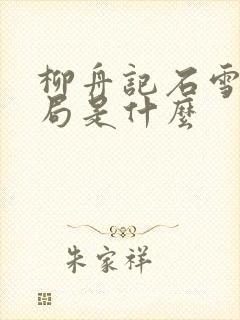 柳舟記石雪
局是什麼
朱家祥